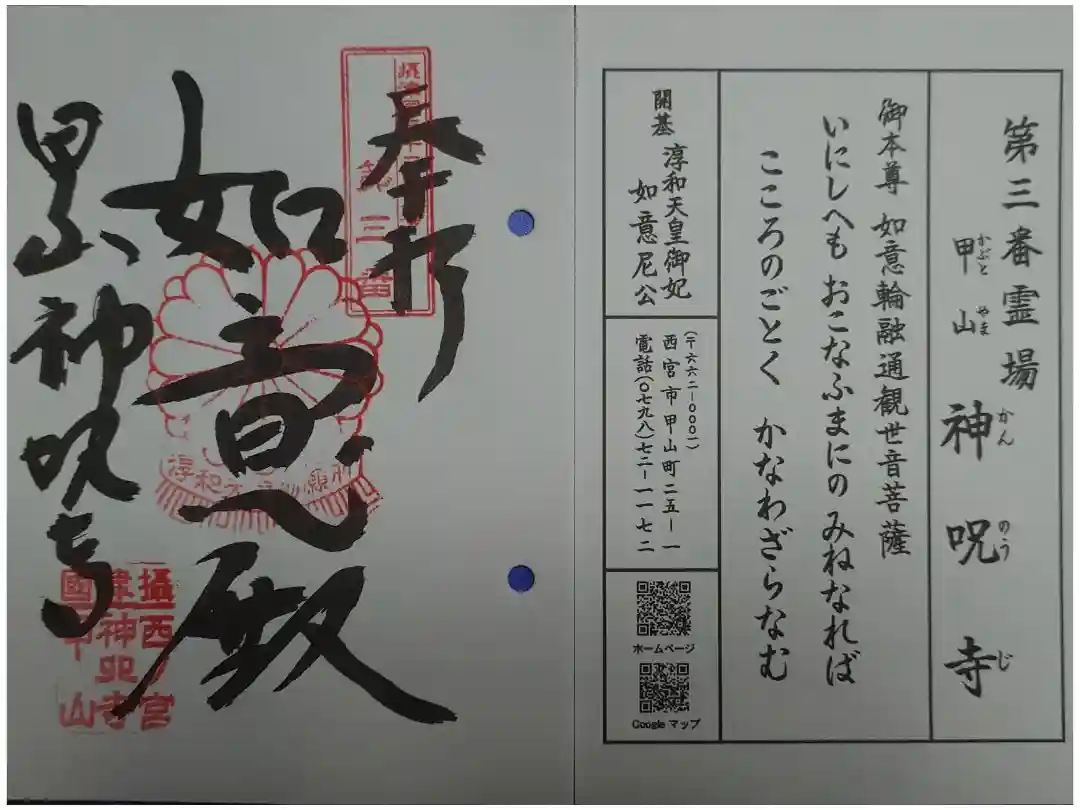 第三番霊場
甲山 神呪寺
かぶと やま かん のう じ
御本尊 如意輪融通観世音菩薩
いにしへも おこなふまにの みねなれば
こころのごとく かなわざらなむ
開基 淳和天皇御妃
如意尼公
(〒六六二－〇〇〇一)
西宮市甲山町二五－一
電話(〇七九八)七二－一一七二
ホームページ
Googleマップ
奉拝
第三番
如意殿
甲山 神呪寺
攝西ノ宮
神呪寺
國甲山